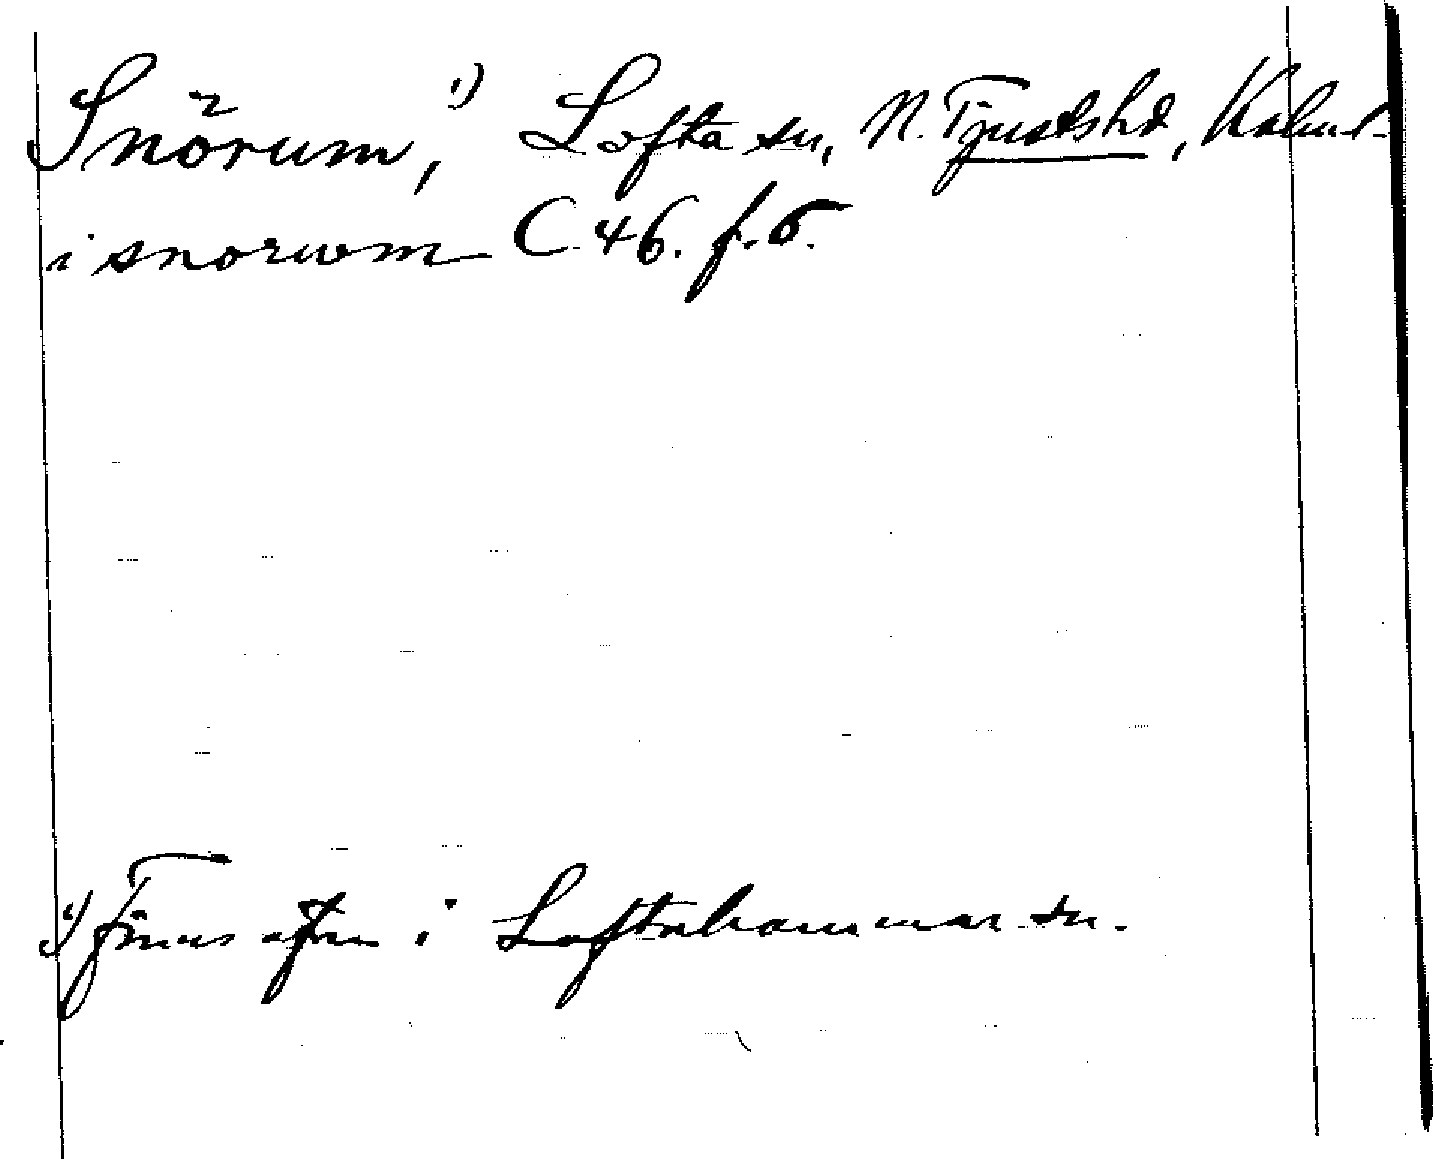 Snörum,¹⁾ Lofta sn, N. Tjusts hd, Kalm.
i snorwm C 46. f. 6.
¹⁾ Finns äfven i Loftahammar sn.